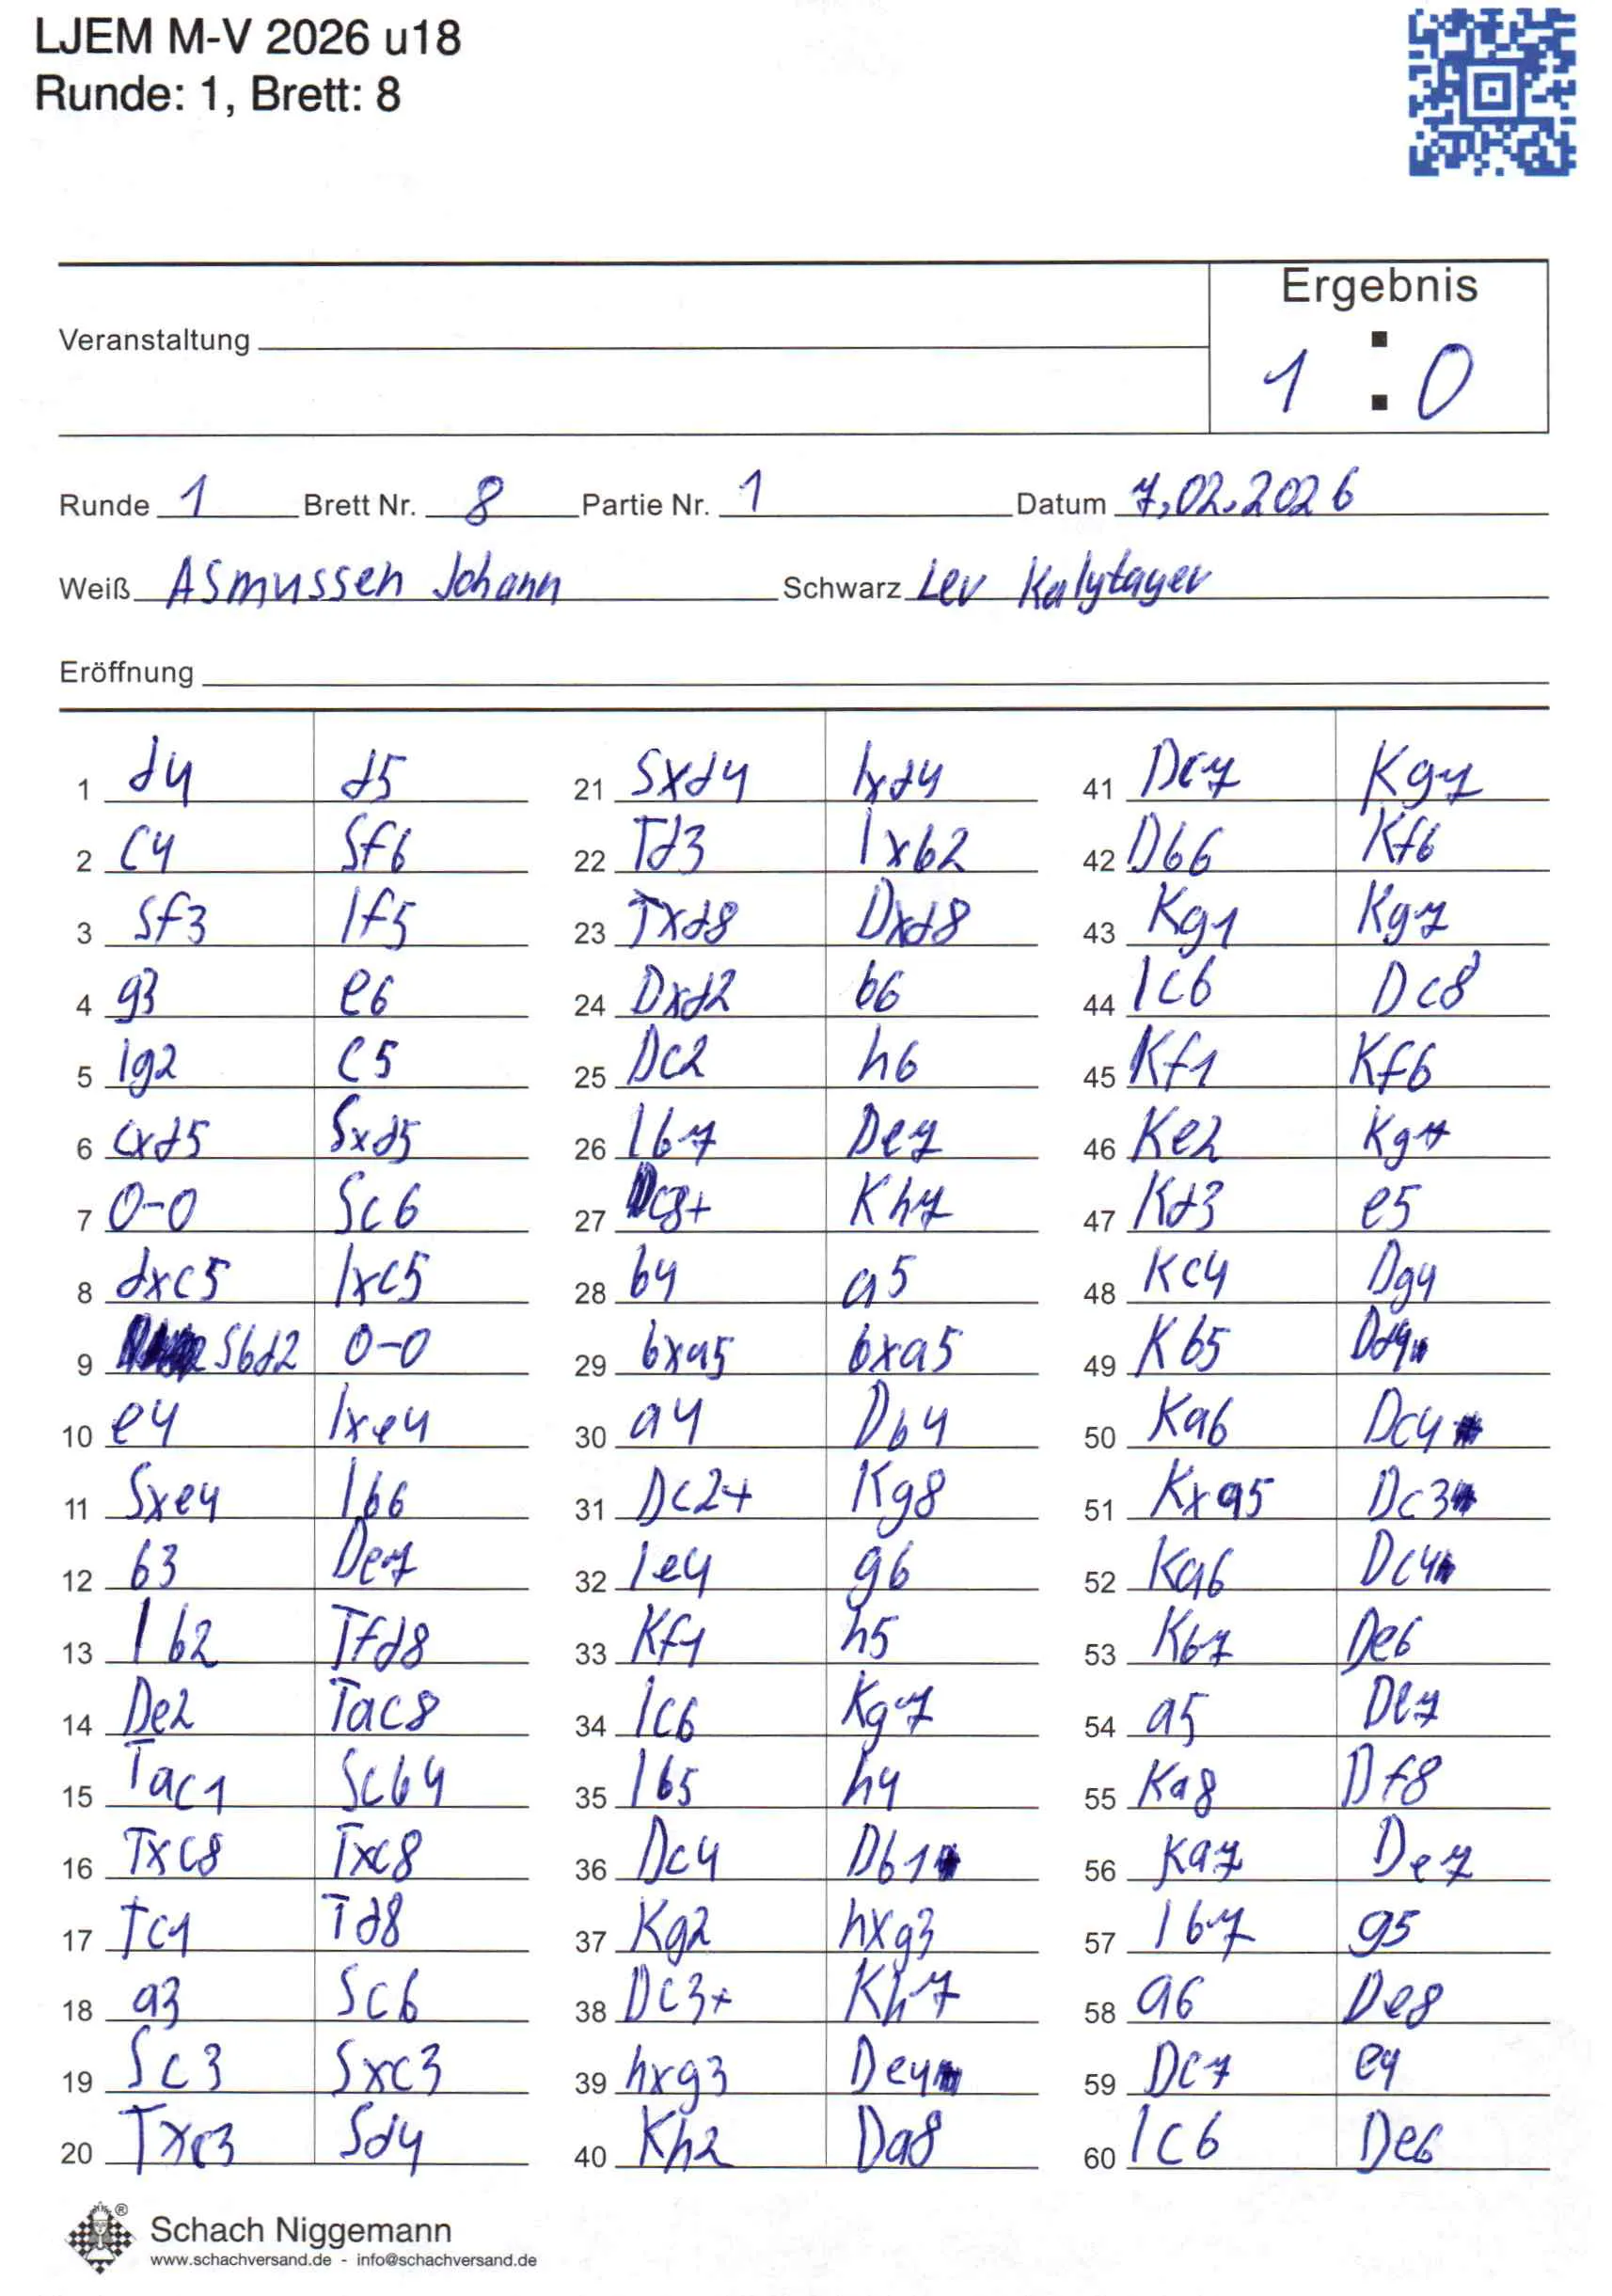 LJEM M-V 2026 u18
Runde: 1, Brett: 8
Ergebnis
1 : 0
Veranstaltung
Runde 1 Brett Nr. 8 Partie Nr. 1 Datum 7.02.2026
Weiß Asmussen Johann Schwarz Lev Kalytayev
Eröffnung
1 d4 d5 21 Sxd4 lxd4 41 Dc7 Kg7
2 c4 Sf6 22 Td3 lxb2 42 Db6 Kf6
3 Sf3 lf5 23 Txd8 Dxd8 43 Kg1 Kg7
4 g3 e6 24 Dxd2 b6 44 lc6 Dc8
5 lg2 c5 25 Dc2 h6 45 Kf1 Kf6
6 cxd5 Sxd5 26 lb7 De7 46 Ke2 Kg7
7 0-0 Sc6 27 Dc8+ Kh7 47 Kd3 e5
8 dxc5 lxc5 28 b4 a5 48 Kc4 Dg4
9 Sbd2 0-0 29 bxa5 bxa5 49 Kb5 Dd4
10 e4 lxe4 30 a4 Db4 50 Ka6 Dc4
11 Sxe4 lb6 31 Dc2+ Kg8 51 Kxa5 Dc3
12 b3 De7 32 le4 g6 52 Ka6 Dc4
13 lb2 Tfd8 33 Kf1 h5 53 Kb7 De6
14 De2 Tac8 34 lc6 Kg7 54 a5 De7
15 Tac1 Scb4 35 lb5 h4 55 Ka8 Df8
16 Txc8 Txc8 36 Dc4 Db1 56 Ka7 De7
17 Tc1 Td8 37 Kg2 hxg3 57 lb7 g5
18 a3 Sc6 38 Dc3+ Kh7 58 a6 De8
19 Sc3 Sxc3 39 hxg3 De4 59 Dc7 e4
20 Txc3 Sd4 40 Kh2 Da8 60 lc6 De6
Schach Niggemann
www.schachversand.de - info@schachversand.de